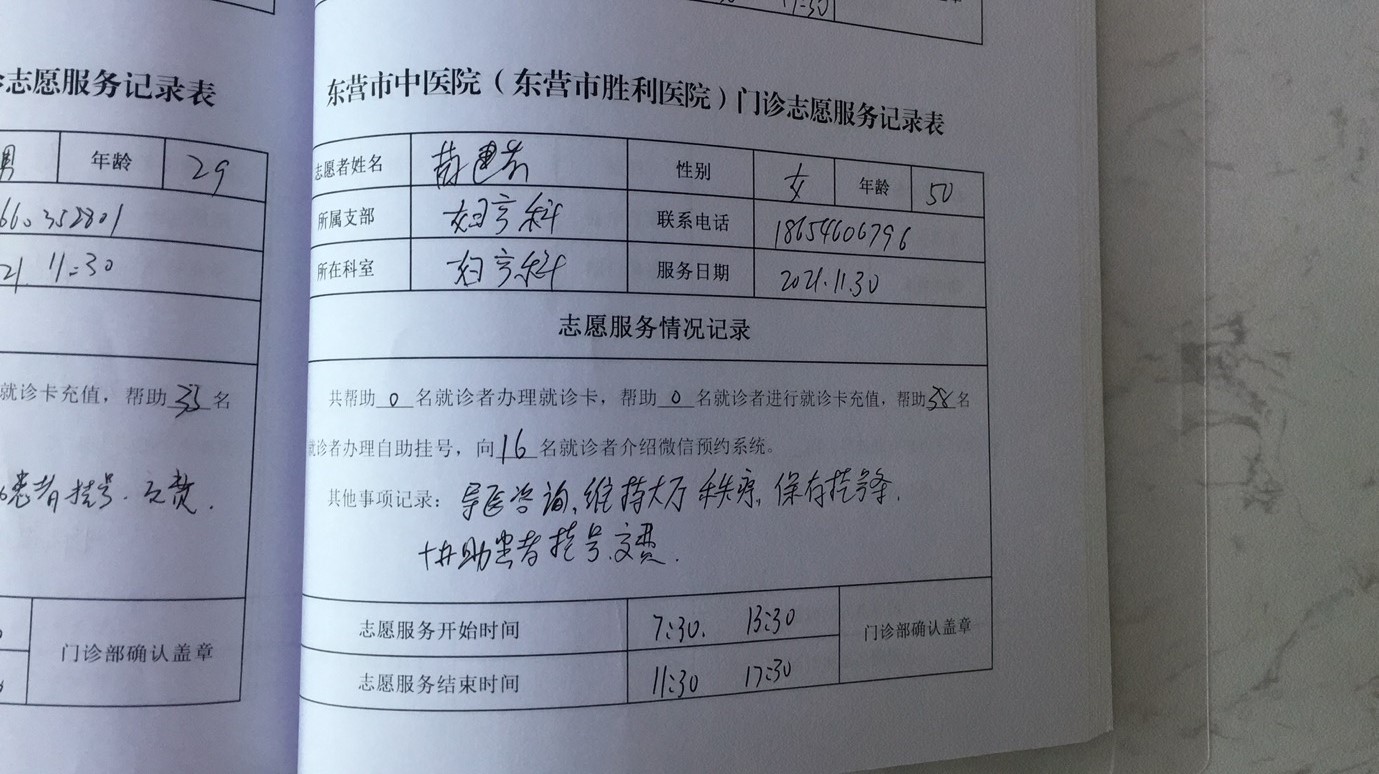 17:30
志愿服务记录表
东营市中医院（东营市胜利医院）门诊志愿服务记录表
男 年龄 29
660352801
21 11:30
就诊卡充值，帮助 33 名
患者挂号.交费.
门诊部确认盖章
志愿者姓名 性别 女 年龄 50
所属支部 妇产科 联系电话 18654606796
所在科室 妇产科 服务日期 2021.11.30
志愿服务情况记录
共帮助 0 名就诊者办理就诊卡，帮助 0 名就诊者进行就诊卡充值，帮助 38 名
就诊者办理自助挂号，向 16 名就诊者介绍微信预约系统。
其他事项记录：导医咨询、维持大厅秩序、
协助患者挂号.交费.
志愿服务开始时间 7:30. 13:30 门诊部确认盖章
志愿服务结束时间 11:30 17:30